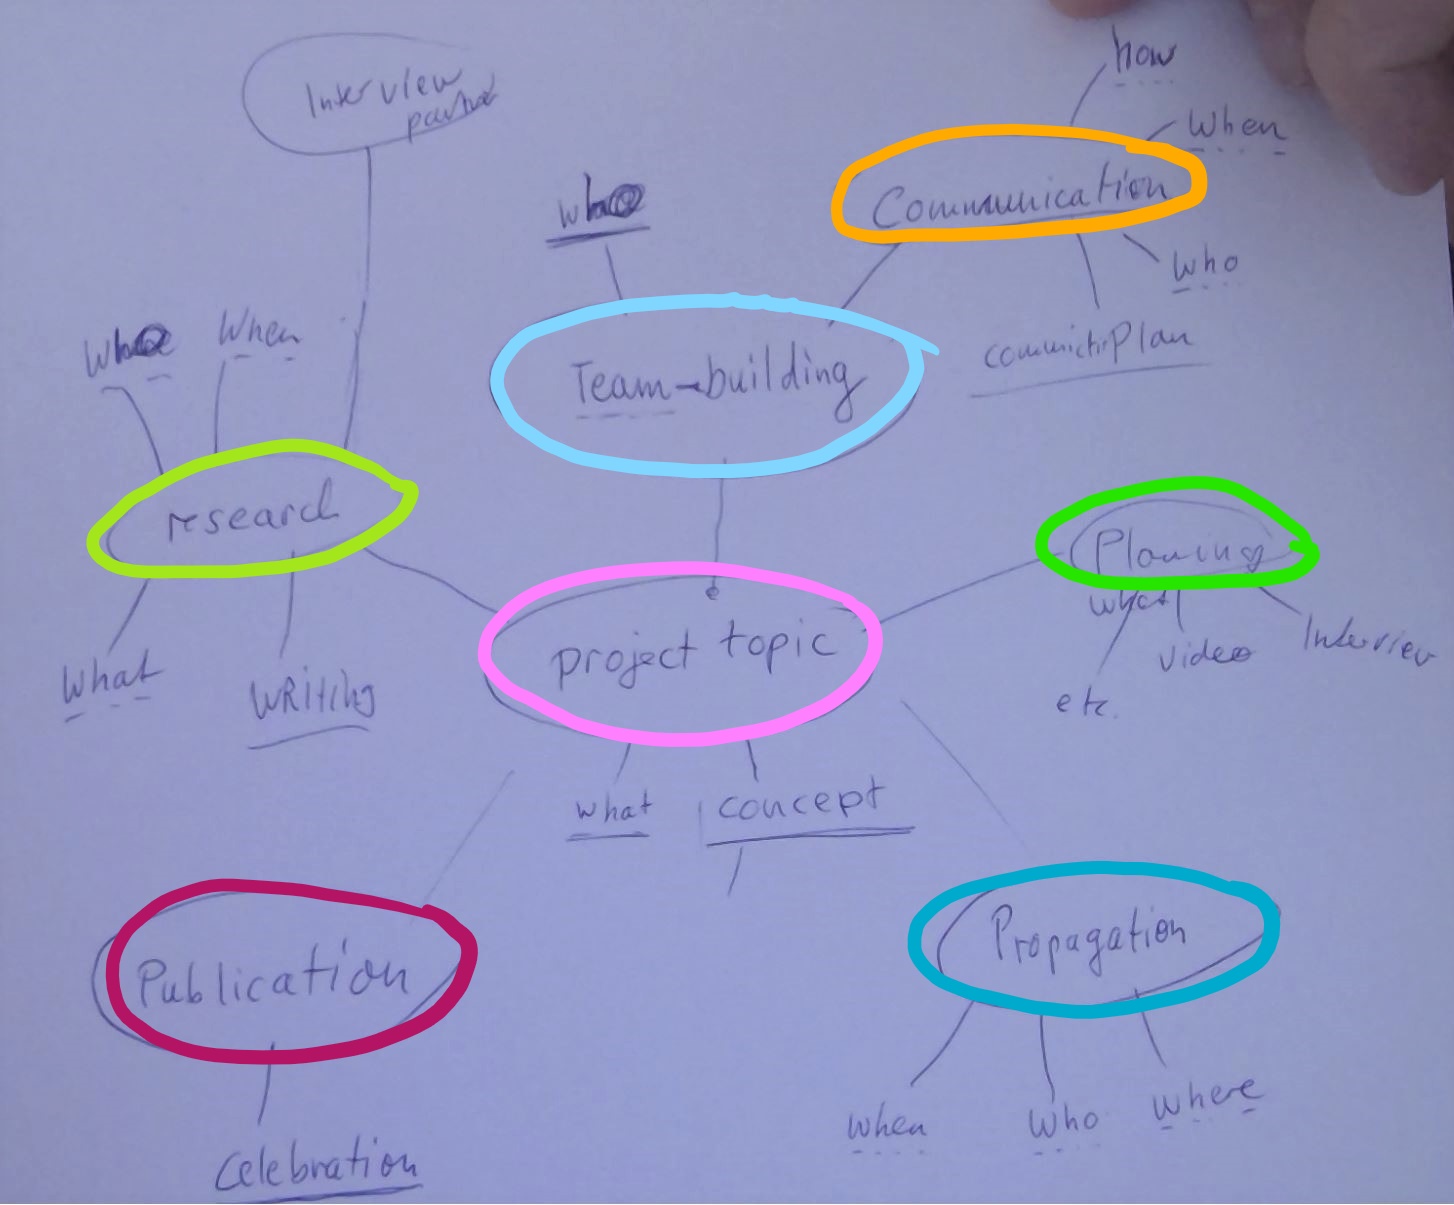 how
Interview
partner
When
who
Communication
who
When
Who
commict.Plan
Team-building
research
Planing
what
Interview
video
project topic
What
WRiting
etc.
what
concept
Propagation
Publication
when
who
where
Celebration